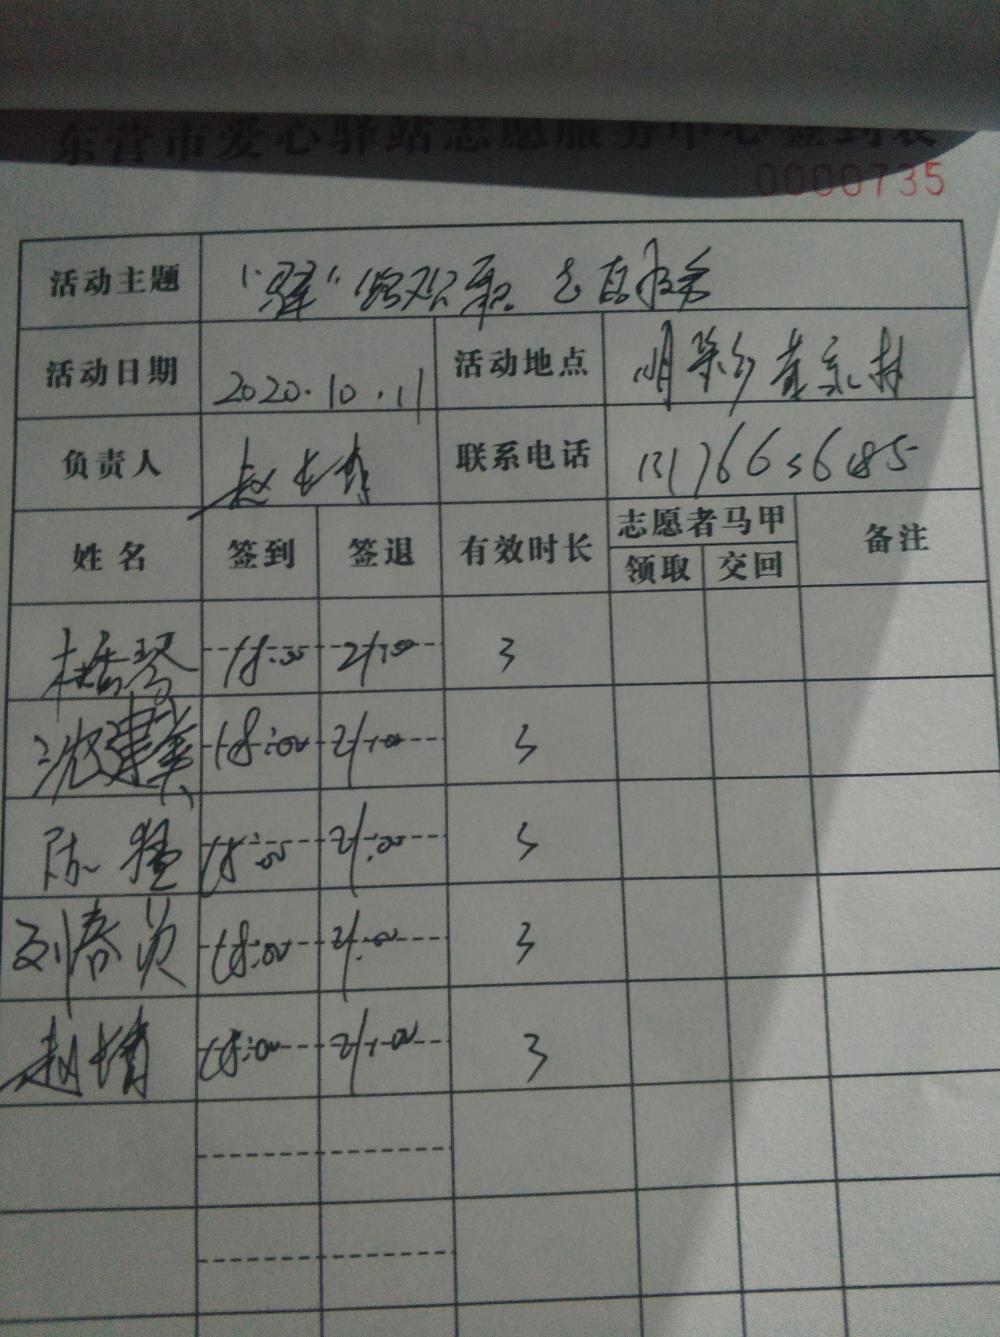 东营市爱心驿站志愿服务中心签到表
0000735
活动主题 "驿"路欢歌 志愿服务
活动日期 2020.10.11 活动地点
负责人 联系电话
姓名 签到 签退 有效时长 志愿者马甲 备注
领取 交回
18:00 21:00 3
18:00 21:00 3
陈 18:00 21:00 3
刘春 18:00 21:00 3
赵 18:00 21:00 3